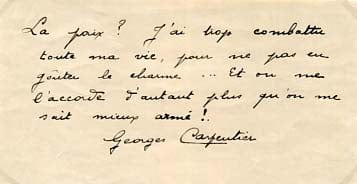 La paix ? J'ai trop combattu
toute ma vie, pour ne pas en
goûter le charme ... Et on me
l'accorde d'autant plus qu'on me
sait mieux armé !.
Georges Carpentier